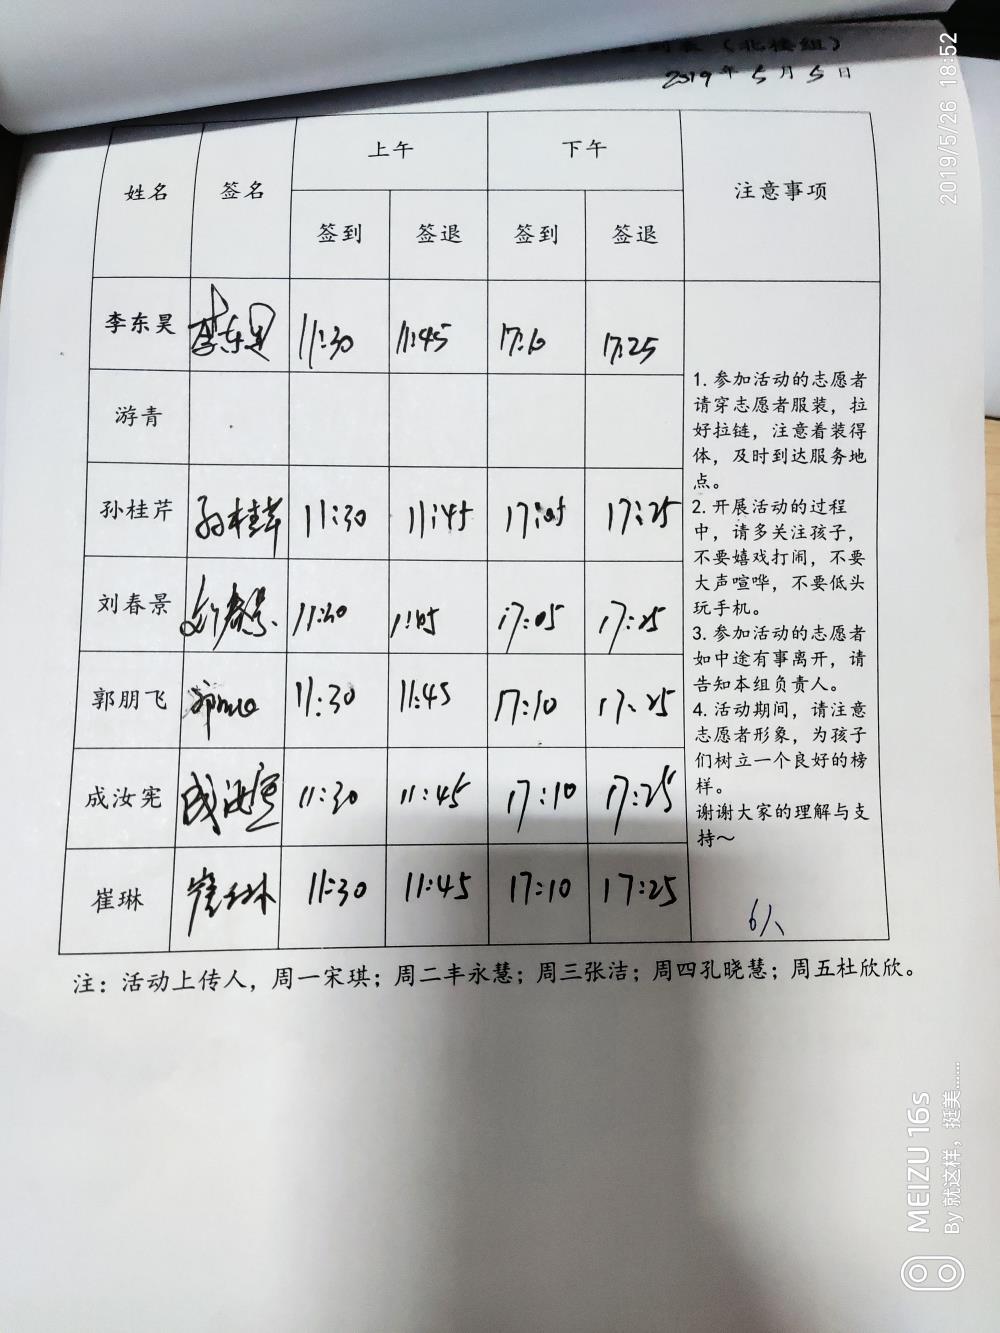 （北楼组）
2019年5月5日
姓名 签名 上午 下午 注意事项
签到 签退 签到 签退
李东昊 李东昊 11:30 11:45 17:10 17:25
游青
孙桂芹 孙桂芹 11:30 11:45 17:05 17:25
刘春景 刘春景 11:30 11:45 17:05 17:25
郭朋飞 11:30 11:45 17:10 17:25
成汝宪 成汝宪 11:30 11:45 17:10 17:25
崔琳 崔琳 11:30 11:45 17:10 17:25
1. 参加活动的志愿者
请穿志愿者服装，拉
好拉链，注意着装得
体，及时到达服务地
点。
2. 开展活动的过程
中，请多关注孩子，
不要嬉戏打闹，不要
大声喧哗，不要低头
玩手机。
3. 参加活动的志愿者
如中途有事离开，请
告知本组负责人。
4. 活动期间，请注意
志愿者形象，为孩子
们树立一个良好的榜
样。
谢谢大家的理解与支
持～
6人
注：活动上传人，周一宋琪；周二丰永慧；周三张洁；周四孔晓慧；周五杜欣欣。
2019/5/26 18:52
MEIZU 16s
By 就这样，挺美……